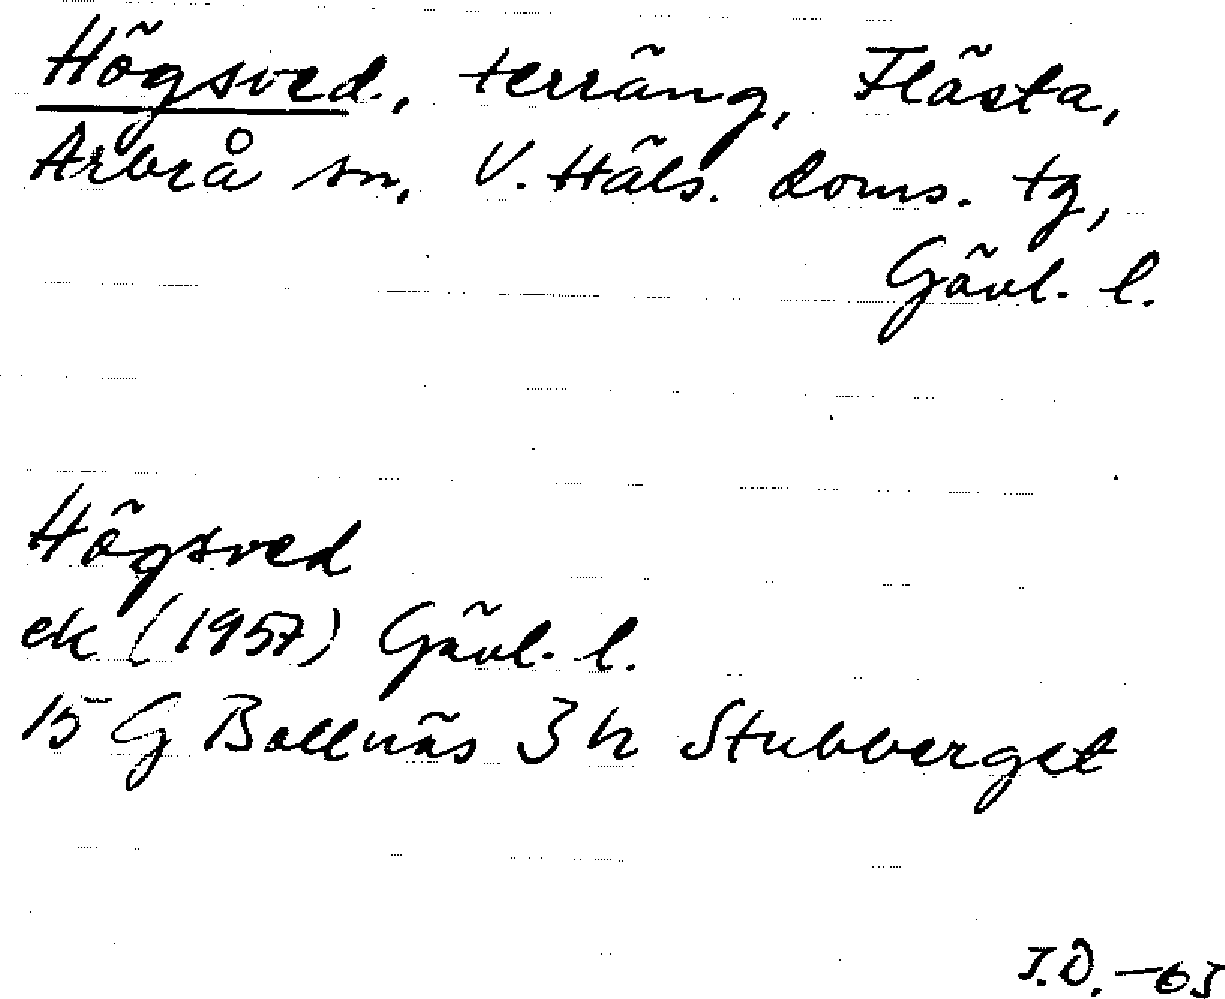 Högsved, terräng, Flästa,
Arbrå sn, V. Häls. doms. tg,
Gävl. l.
Högsved
ek (1957) Gävl. l.
15 G Bollnäs 3 h Stubberget